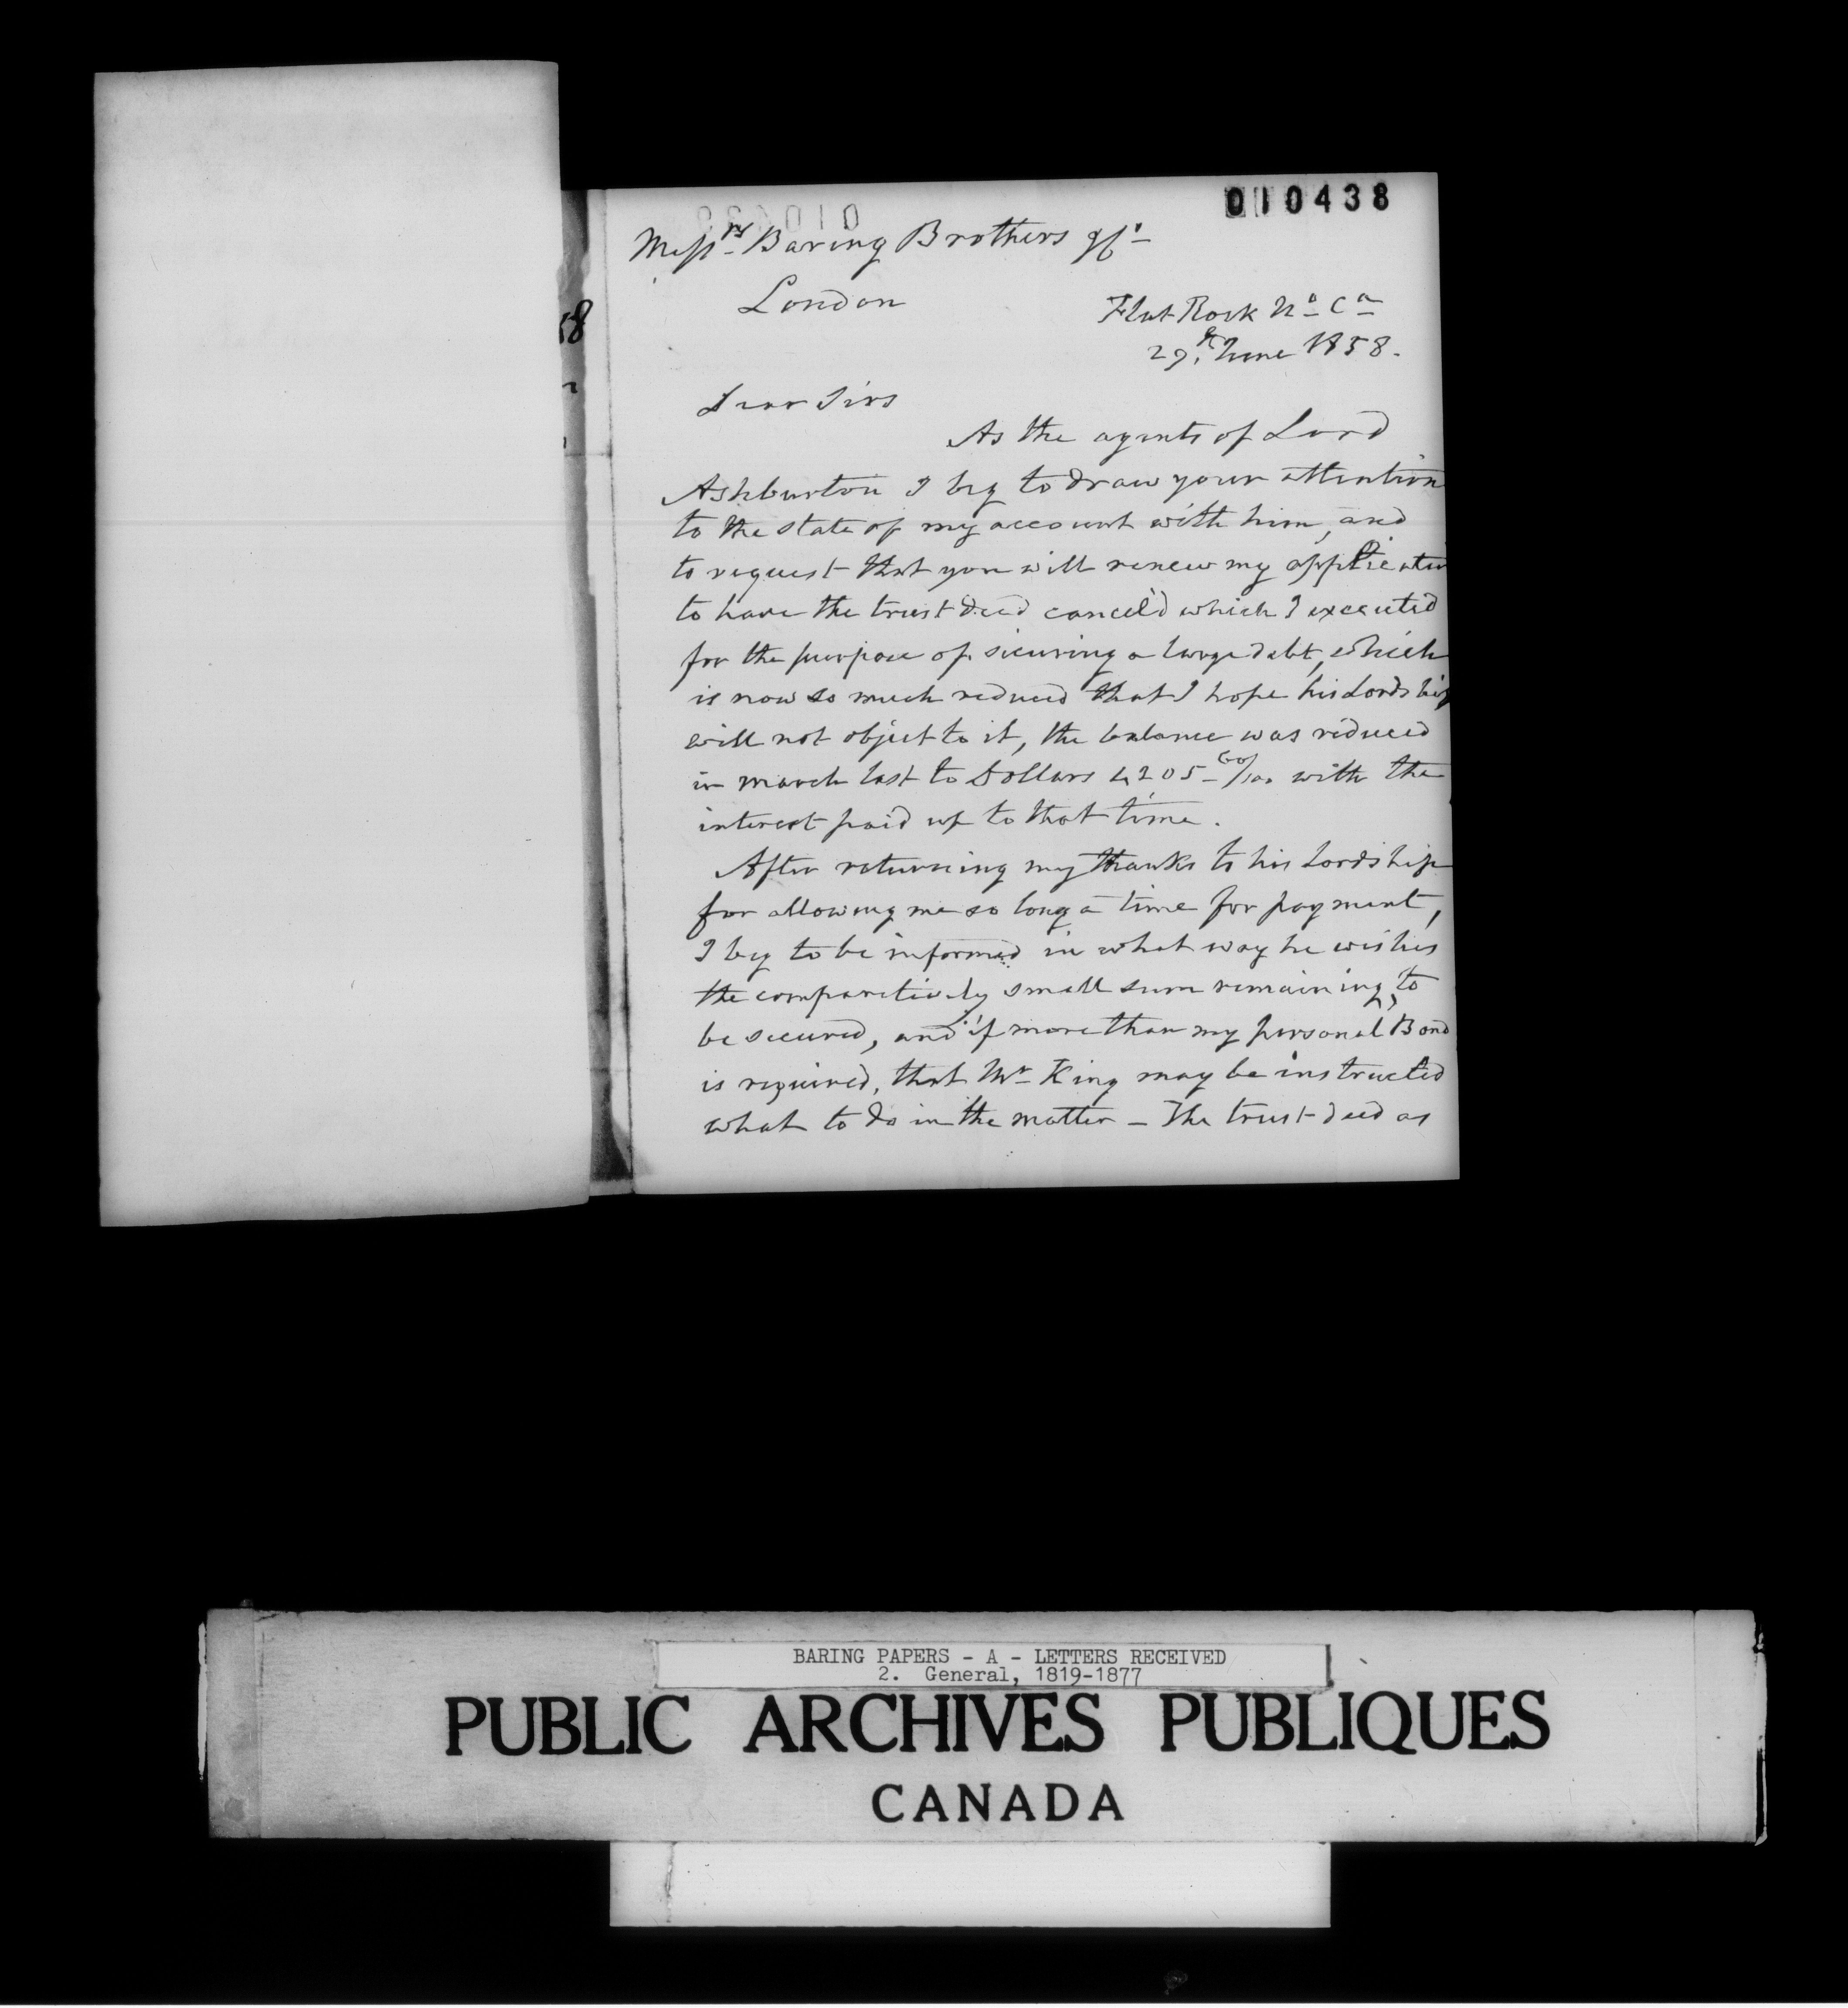 010438
Messrs. Baring Brothers & Co.
London
Flat Rock No. Ca.
29th June 1858.
Dear Sirs
As the agents of Lord
Ashburton I beg to draw your attention
to the state of my account with him, and
to request that you will renew my application
to have the trust deed cancel'd which I executed
for the purpose of securing a large debt, which
is now so much reduced that I hope his Lordship
will not object to it, the balance was reduced
in March last to Dollars 4205-60/100 with the
interest paid up to that time.
After returning my thanks to his Lordship
for allowing me so long a time for payment,
I beg to be informed in what way he wishes
the comparetively small sum remaining, to
be secured, and if more than my personal Bond
is required, that Mr. King may be instructed
what to do in the matter - The trust deed as
BARING PAPERS - A - LETTERS RECEIVED
2. General, 1819-1877
PUBLIC ARCHIVES PUBLIQUES
CANADA